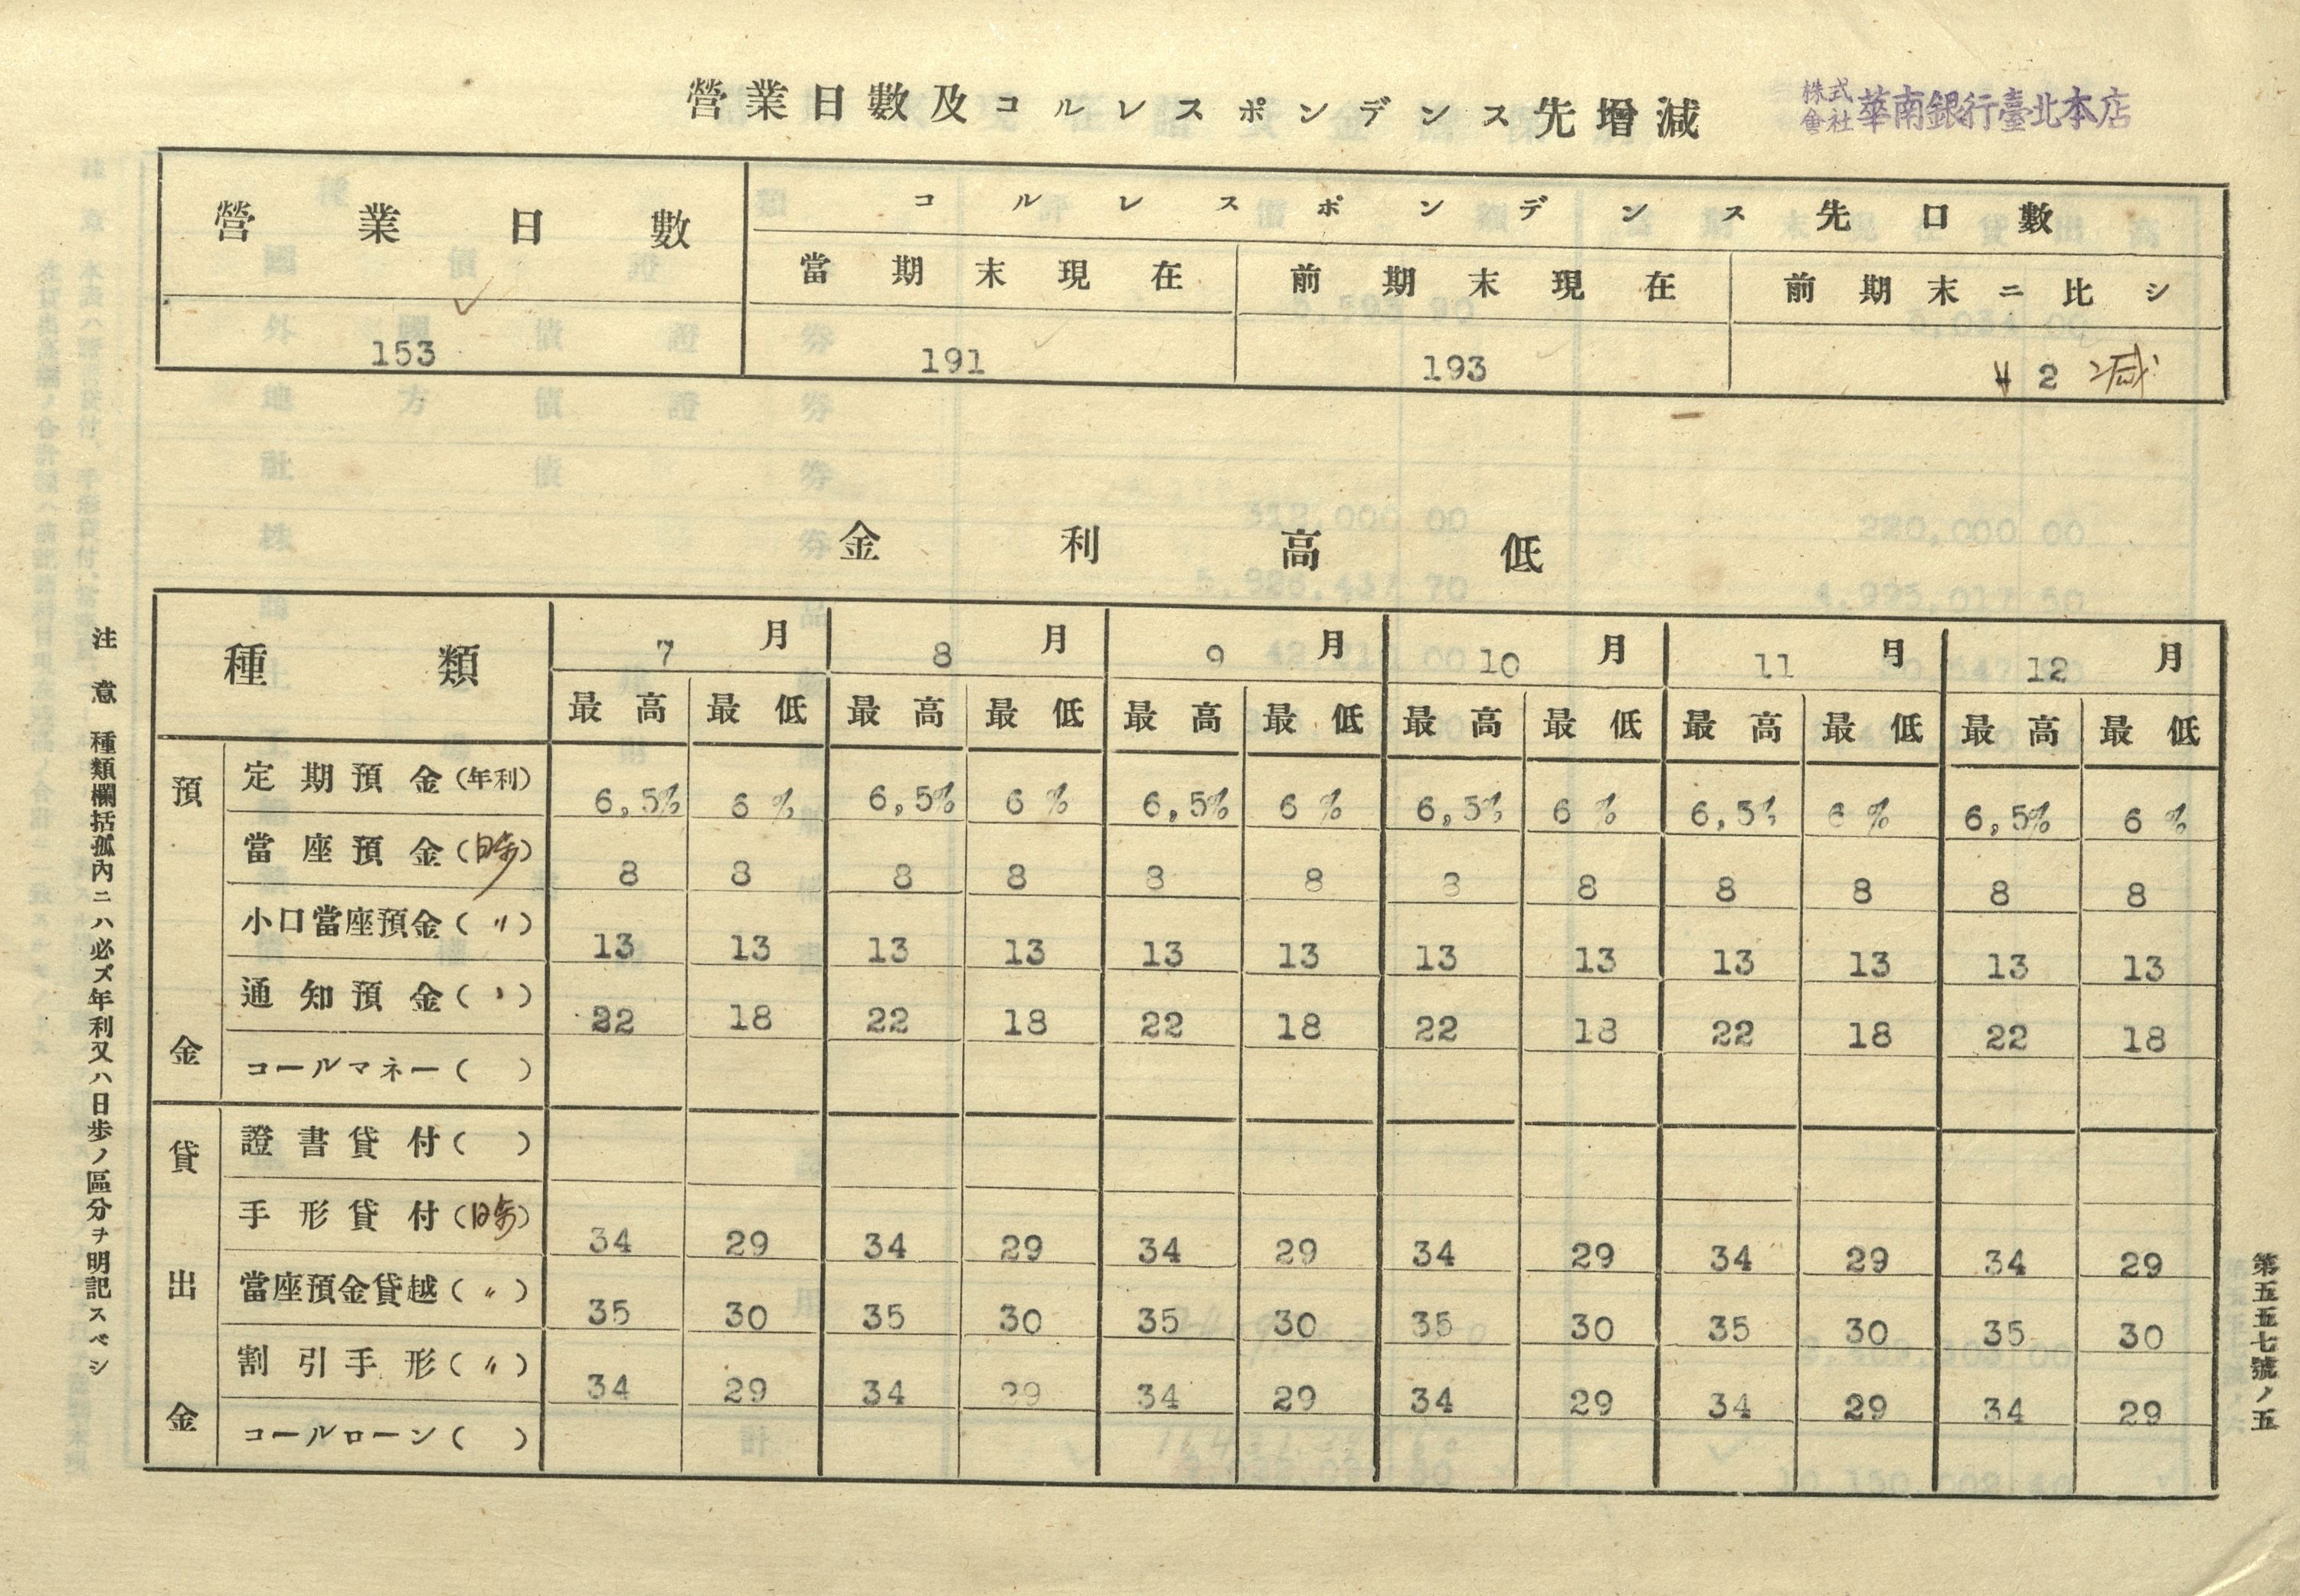 營業日數及コルレスポンデンス先增減
株式會社華南銀行臺北本店
營業日數 コルレスポンデンス先口數
當期末現在 前期末現在 前期末ニ比シ
153 191 193 2 減
金利高低
種類 7月 8月 9月 10月 11月 12月
最高 最低 最高 最低 最高 最低 最高 最低 最高 最低 最高 最低
預金
定期預金(年利) 6,5% 6% 6,5% 6% 6,5% 6% 6,5% 6% 6,5% 6% 6,5% 6%
當座預金(日歩) 8 8 8 8 8 8 8 8 8 8 8 8
小口當座預金(〃) 13 13 13 13 13 13 13 13 13 13 13 13
通知預金(〃) 22 18 22 18 22 18 22 18 22 18 22 18
コールマネー( )
貸出金
證書貸付( )
手形貸付(日歩) 34 29 34 29 34 29 34 29 34 29 34 29
當座預金貸越(〃) 35 30 35 30 35 30 35 30 35 30 35 30
割引手形(〃) 34 29 34 29 34 29 34 29 34 29 34 29
コールローン( )
注意 種類欄括孤內ニハ必ズ年利又ハ日歩ノ區分ヲ明記スベシ
第五五七號ノ五